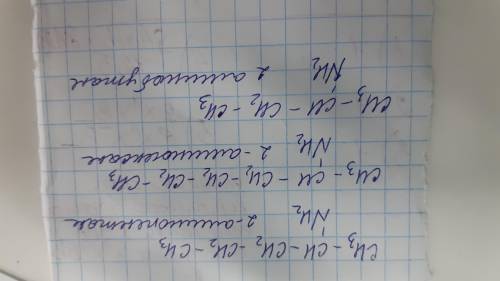 CH₃ – CH – CH₂ – CH₂ – CH₃
NH₂ 2-аминопентан
CH₃ – CH – CH₂ – CH₂ – CH₂ – CH₃
NH₂ 2-аминогексан
CH₃ – CH – CH₂ – CH₃
NH₂ 2 аминобутан